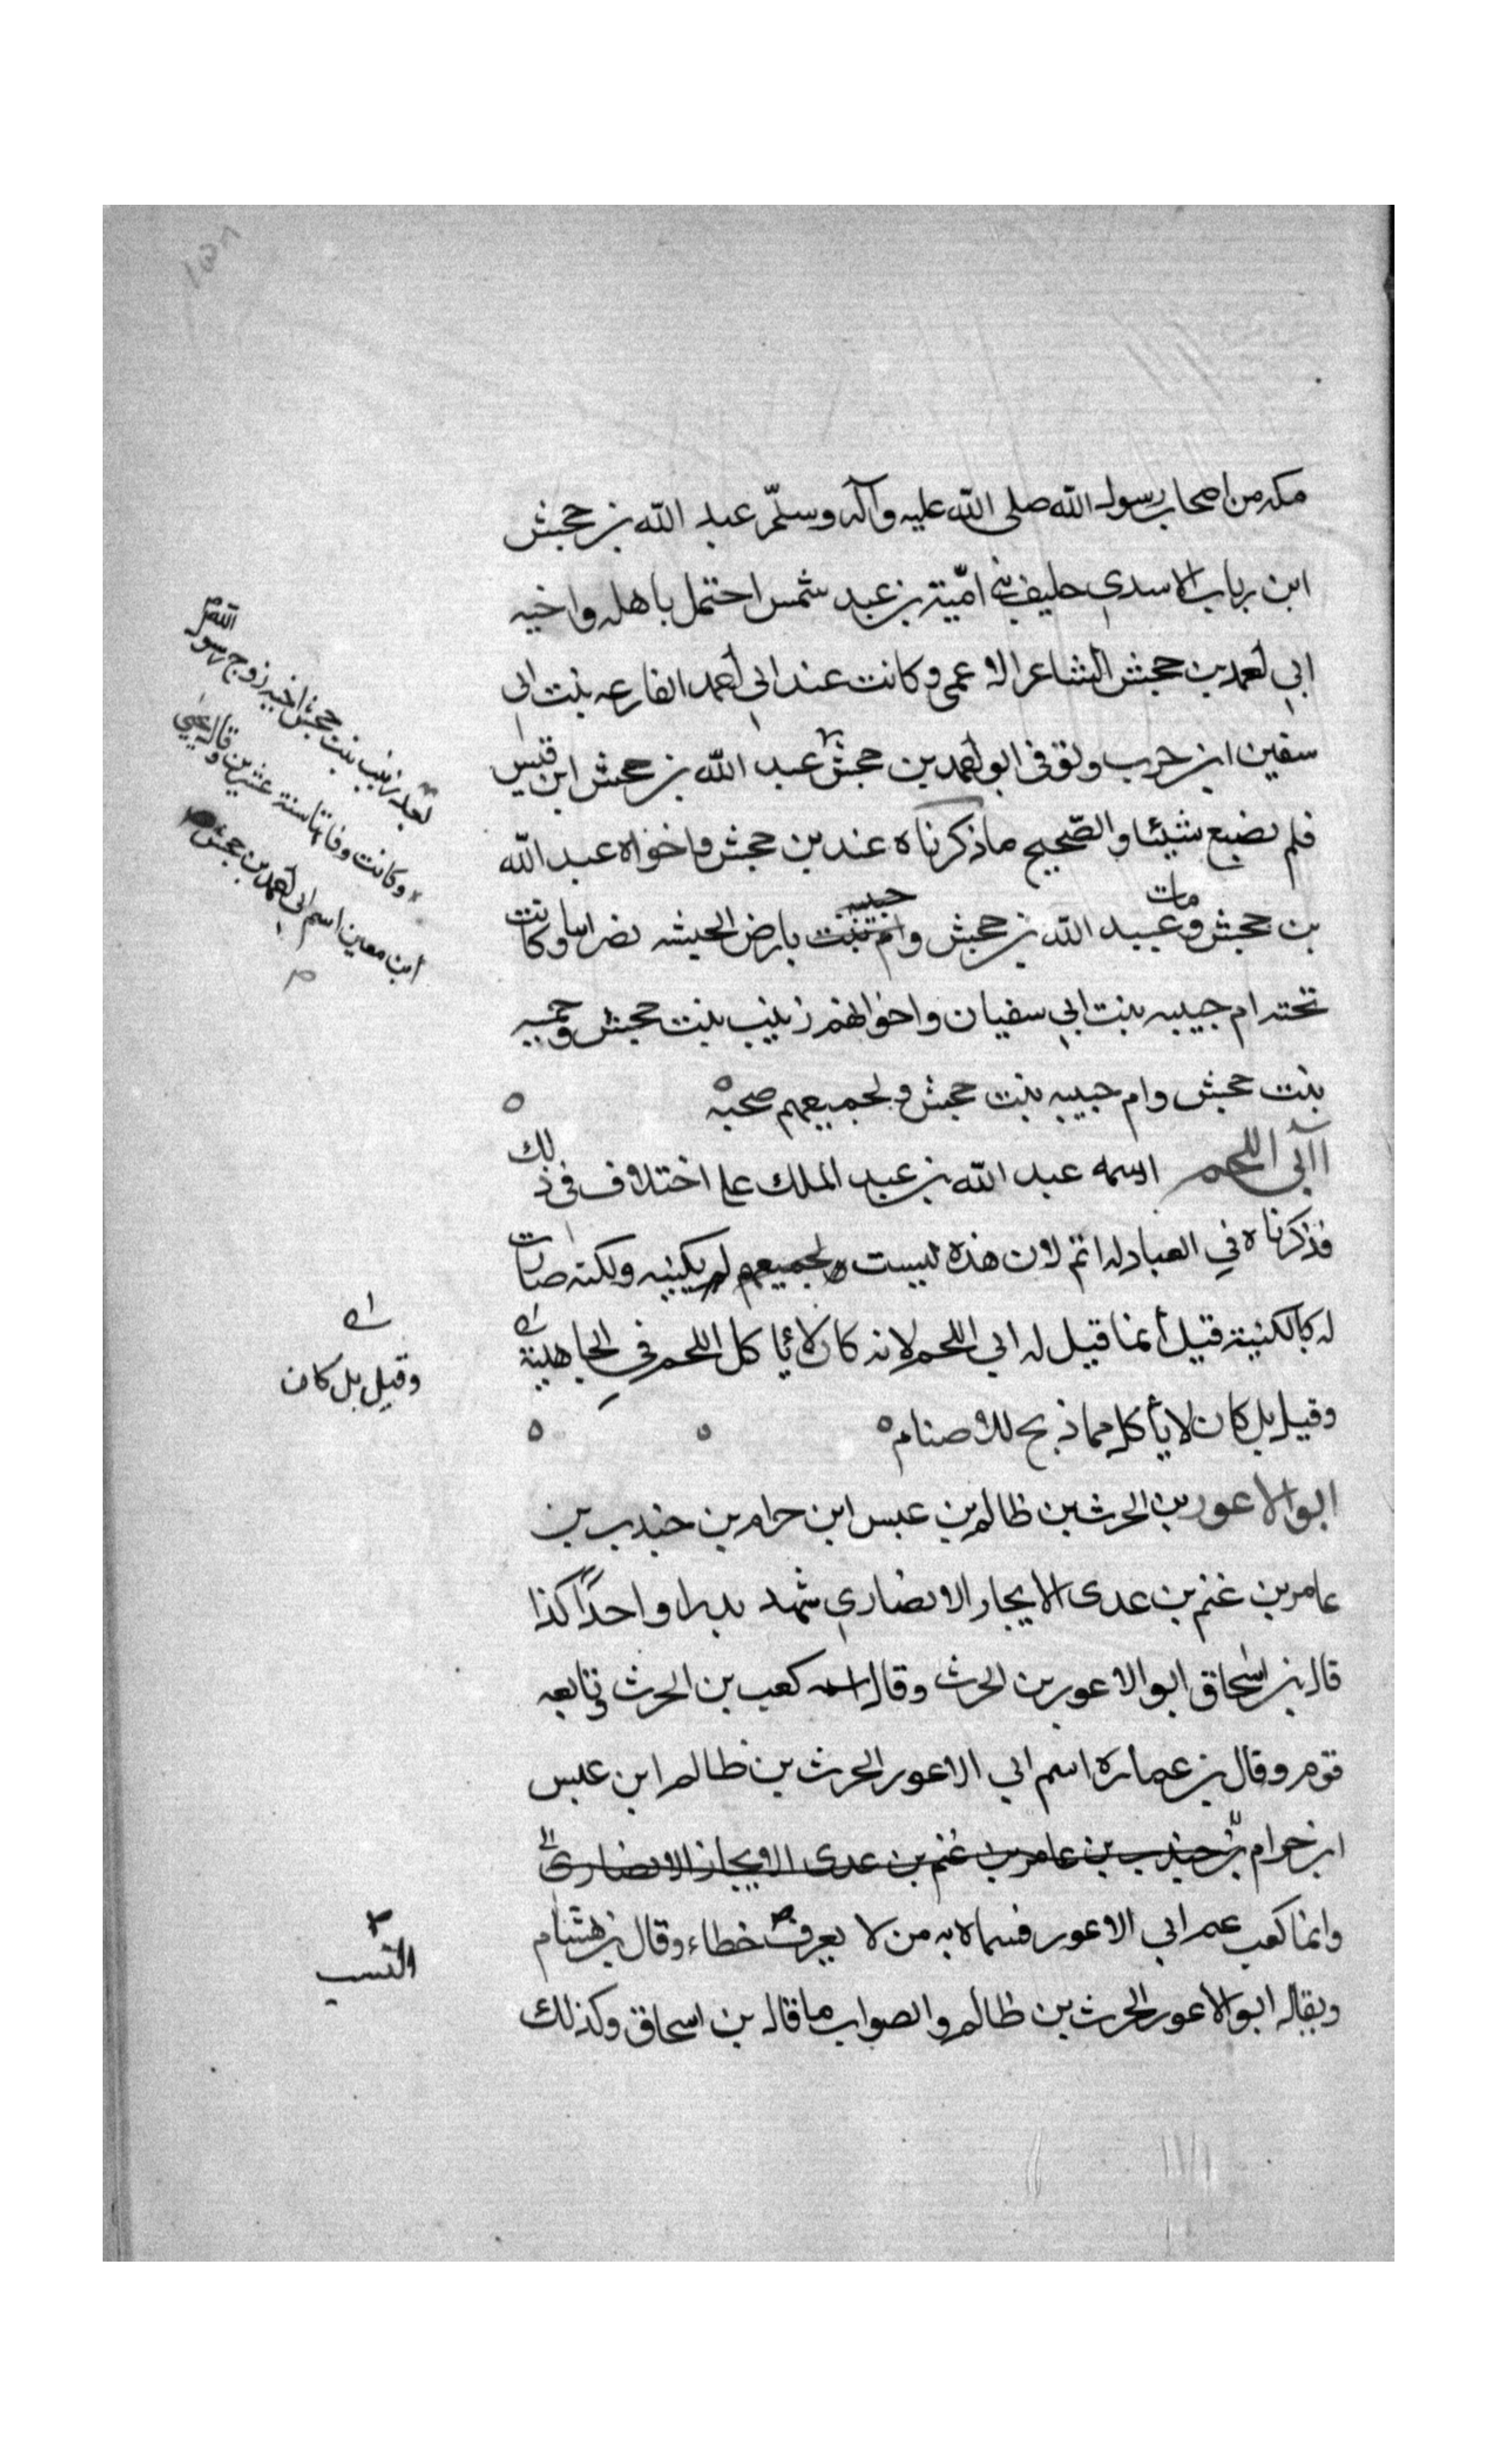 مكه من اصحاب رسول الله صلى الله عليه وآله وسلّم عبد الله بن حجش
ابن رباب الاسدي حليف بني اميّة بن عبد شمس احتمل باهله واخيه
ابي احمد بن حجش الشاعر الاعمى وكانت عند ابي احمد الفارعه بنت ابي
سفين ابن حرب وتوفى ابو احمد بن حجش عبد الله بن حجش ابن قيس
فلم يصنع شيئا والصّحيح ما ذكرناه عند بن حجش واخواه عبد الله
بن حجش وعبيد الله بن حجش مات بارض الحبشه نصرانيا وكانت
تحته ام حبيبه بنت ابي سفيان واخواتهم زينب بنت حجش وحمنه
بنت حجش وام حبيبه بنت حجش ولجميعهم صحبه
اآبي اللحم اسمه عبد الله بن عبد الملك على اختلاف في ذلك
فذكرناه في العبادله اتم لان هذه ليست بكنيه ولكنه صارت
له كالكنية قيل أنما قيل له ابي اللحم لانه كان لا يأكل اللحم في الجاهلية
وقيل بل كان لا يأكل مما ذبح للاصنام
ابو الاعور بن الحرث بن ظالم بن عبس ابن حرام بن جندب بن
عامر بن غنم بن عدى الانجار الانصاري شهد بدرا واحدًا كذا
قال بن اسحاق ابو الاعور بن الحرث وقال اسمه كعب بن الحرث وتابعه
قوم وقال بن عمارة اسم ابي الاعور الحرث بن ظالم ابن عبس
ابن حرام بن جندب بن عامر بن غنم بن عدى الانجار الانصارى
وانما كعب عم ابي الاعور فسماه به من لا يعرف خطاء وقال بن هشام
ويقال ابو الاعور الحرث بن ظالم والصواب ما قال بن اسحاق وكذلك
بعد زينب بنت حجش اخيه زوج رسول الله
وكانت وفاتها سنة عشرين وقال يحيى
ابن معين اسم ابي احمد بن حجش
وقيل بل كان
النسب